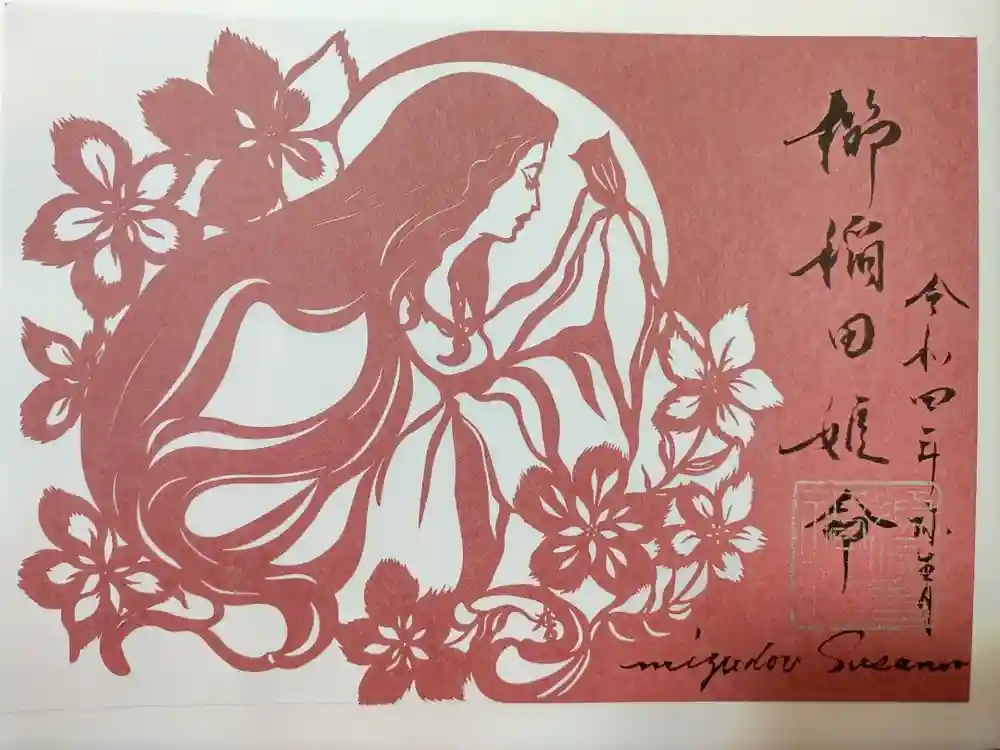 櫛稲田姫命
令和四年弥生月
mizudou Susanoo